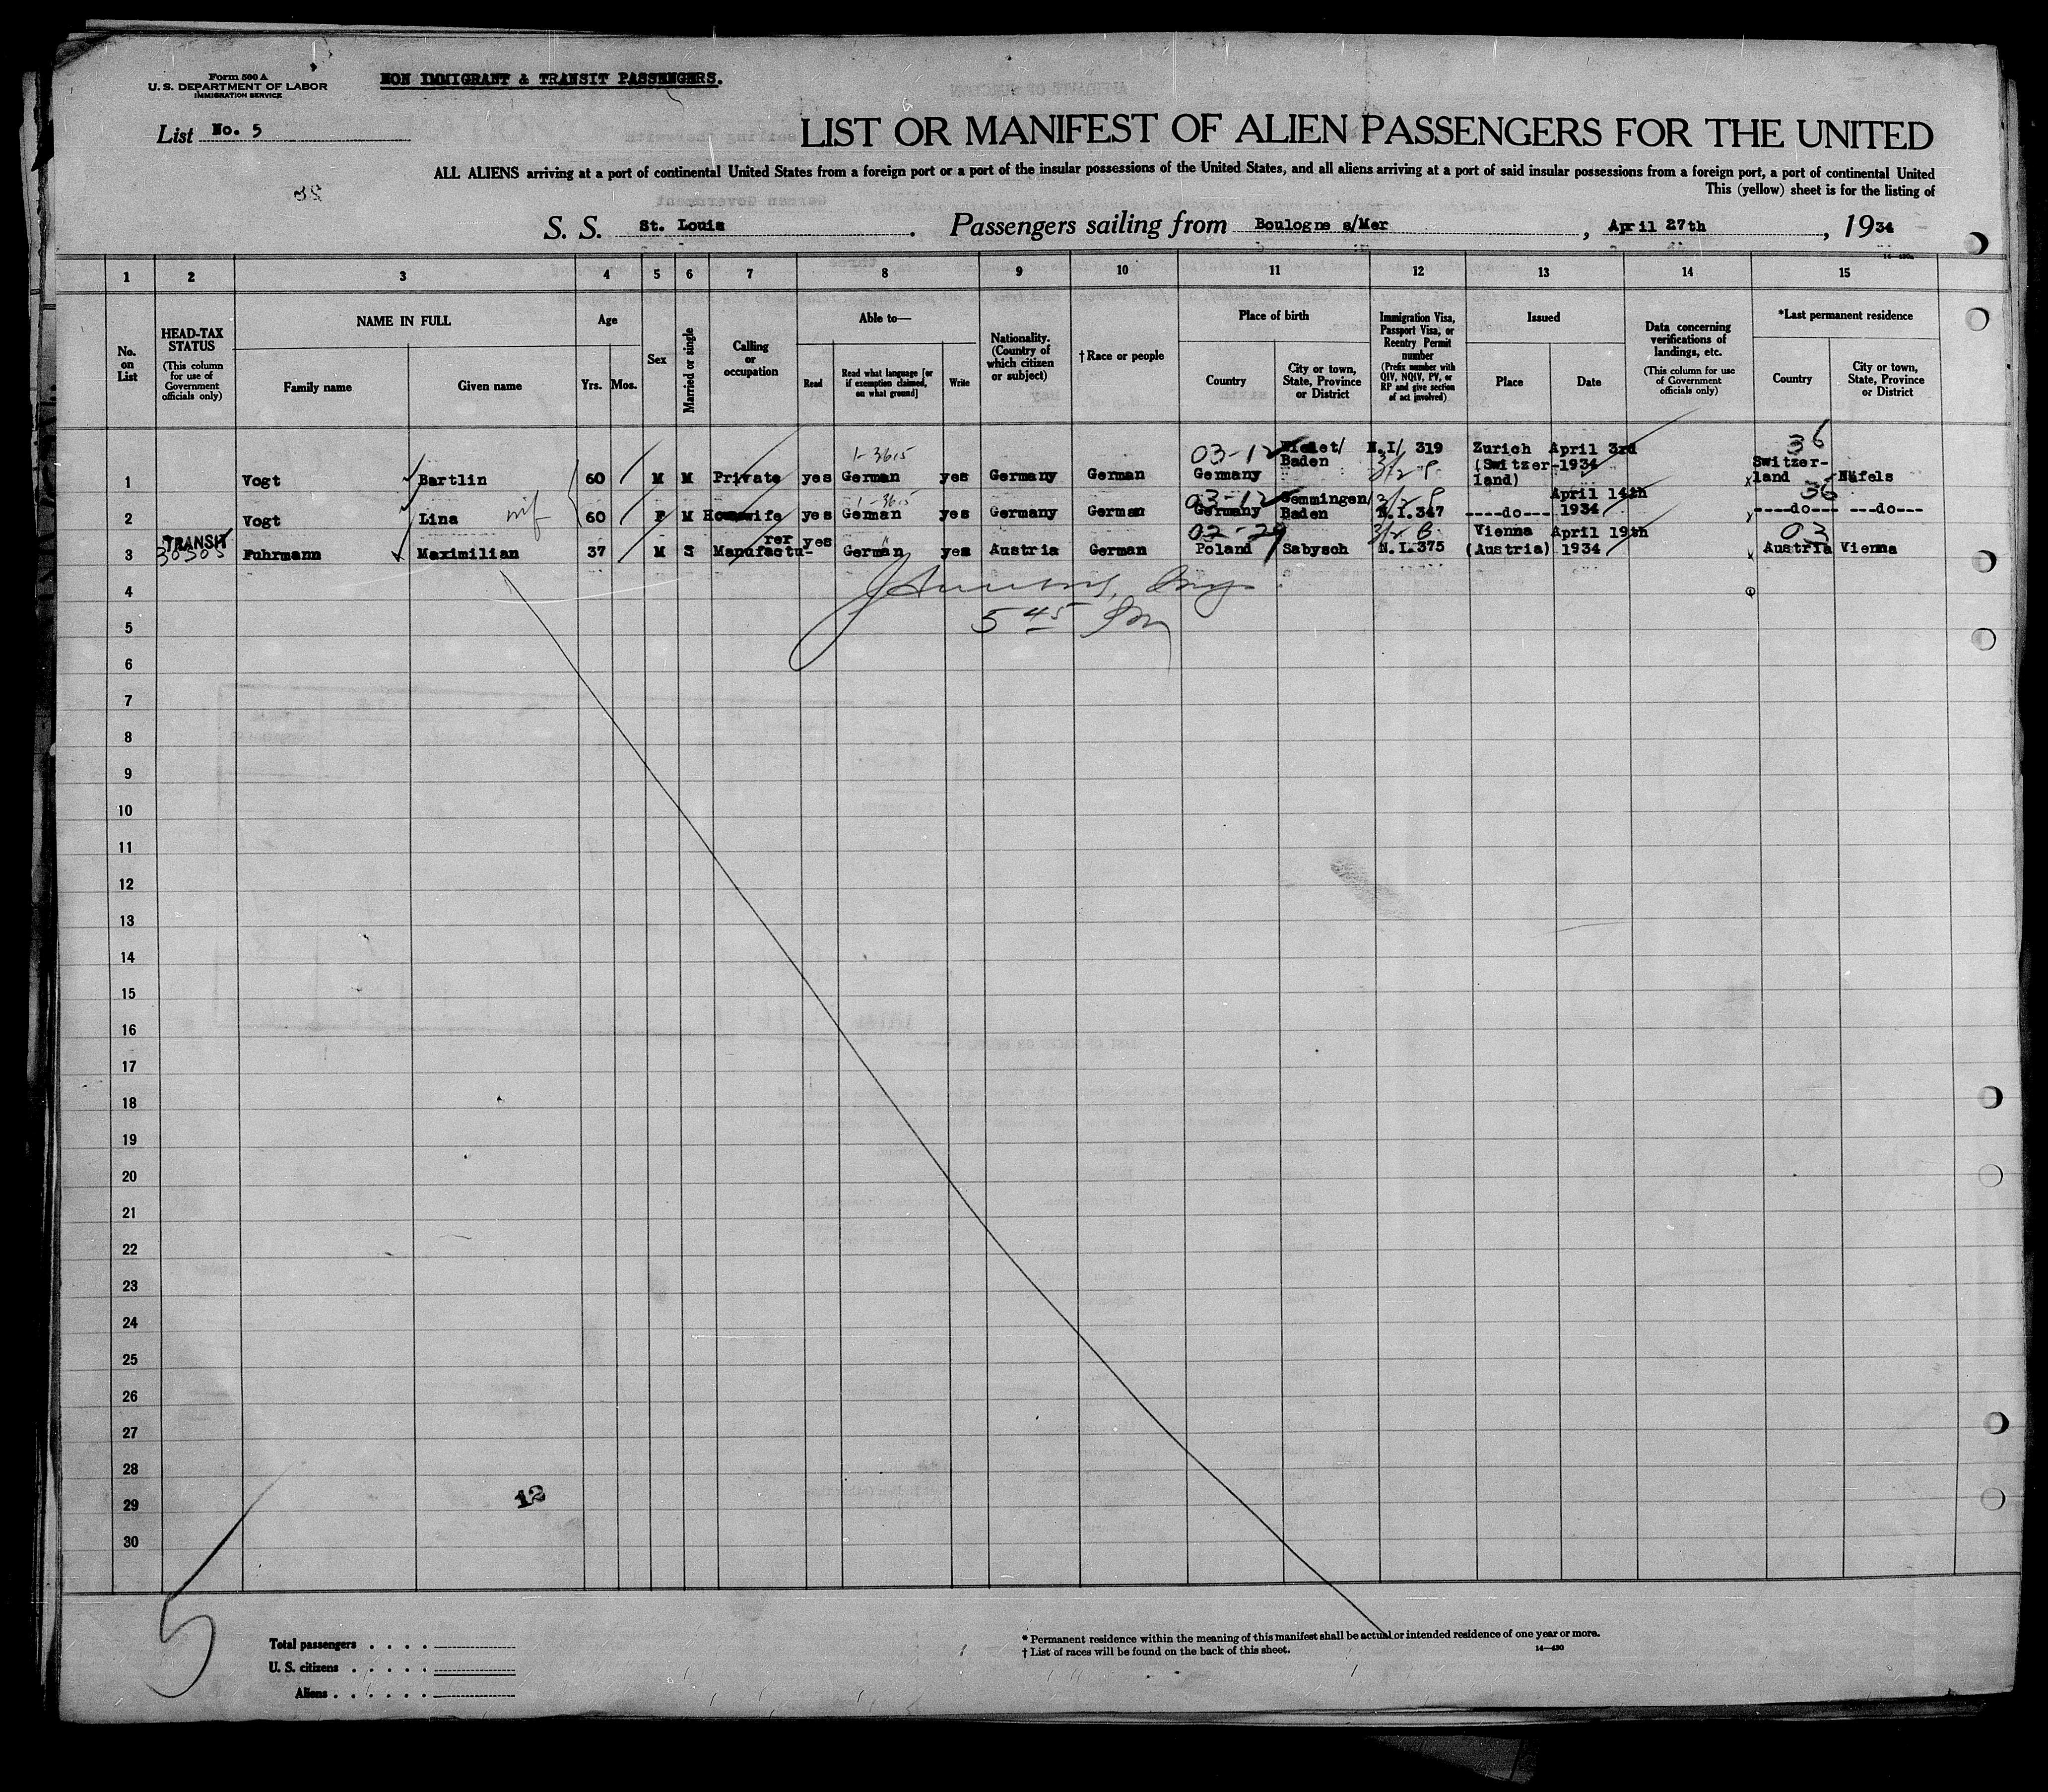 Form 500 A
U. S. DEPARTMENT OF LABOR
IMMIGRATION SERVICE
NON IMMIGRANT & TRANSIT PASSENGERS.
List No. 5
LIST OR MANIFEST OF ALIEN PASSENGERS FOR THE UNITED
ALL ALIENS arriving at a port of continental United States from a foreign port or a port of the insular possessions of the United States, and all aliens arriving at a port of said insular possessions from a foreign port, a port of continental United
This (yellow) sheet is for the listing of
S. S. St. Louis . Passengers sailing from Boulogne s/Mer , April 27th , 1934
1 2 3 4 5 6 7 8 9 10 11 12 13 14 15
No. on List
HEAD-TAX STATUS (This column for use of Government officials only)
NAME IN FULL
Family name Given name
Age
Yrs. Mos.
Sex
Married or single
Calling or occupation
Able to—
Read Read what language [or if exemption claimed, on what ground] Write
Nationality. (Country of which citizen or subject)
†Race or people
Place of birth
Country City or town, State, Province or District
Immigration Visa, Passport Visa, or Reentry Permit number (Prefix number with QIV, NQIV, PV, or RP and give section of act involved)
Issued
Place Date
Data concerning verifications of landings, etc. (This column for use of Government officials only)
*Last permanent residence
Country City or town, State, Province or District
1 Vogt Bartlin 60 M M Private yes German yes Germany German 03-12 Germany Baden N.I/ 319 Zurich (Switzer-land) April 3rd 1934 36 Switzer-land Näfels
2 Vogt Lina wif 60 F M Housewife yes German yes Germany German 03-12 Germany Gemmingen/ Baden N.I.347 ----do--- April 14th 1934 36 ----do---- ---do---
3 TRANSIT 30305 Fuhrmann Maximilian 37 M S Manufacturer yes German yes Austria German 02-29 Poland Sabysch N.I.375 Vienna (Austria) April 19th 1934 03 Austria Vienna
4
5 5 45 Pm
6
7
8
9
10
11
12
13
14
15
16
17
18
19
20
21
22
23
24
25
26
27
28
29
30
12
5
Total passengers . . . .
U. S. citizens . . . . .
Aliens . . . . . .
* Permanent residence within the meaning of this manifest shall be actual or intended residence of one year or more.
† List of races will be found on the back of this sheet.
14—430